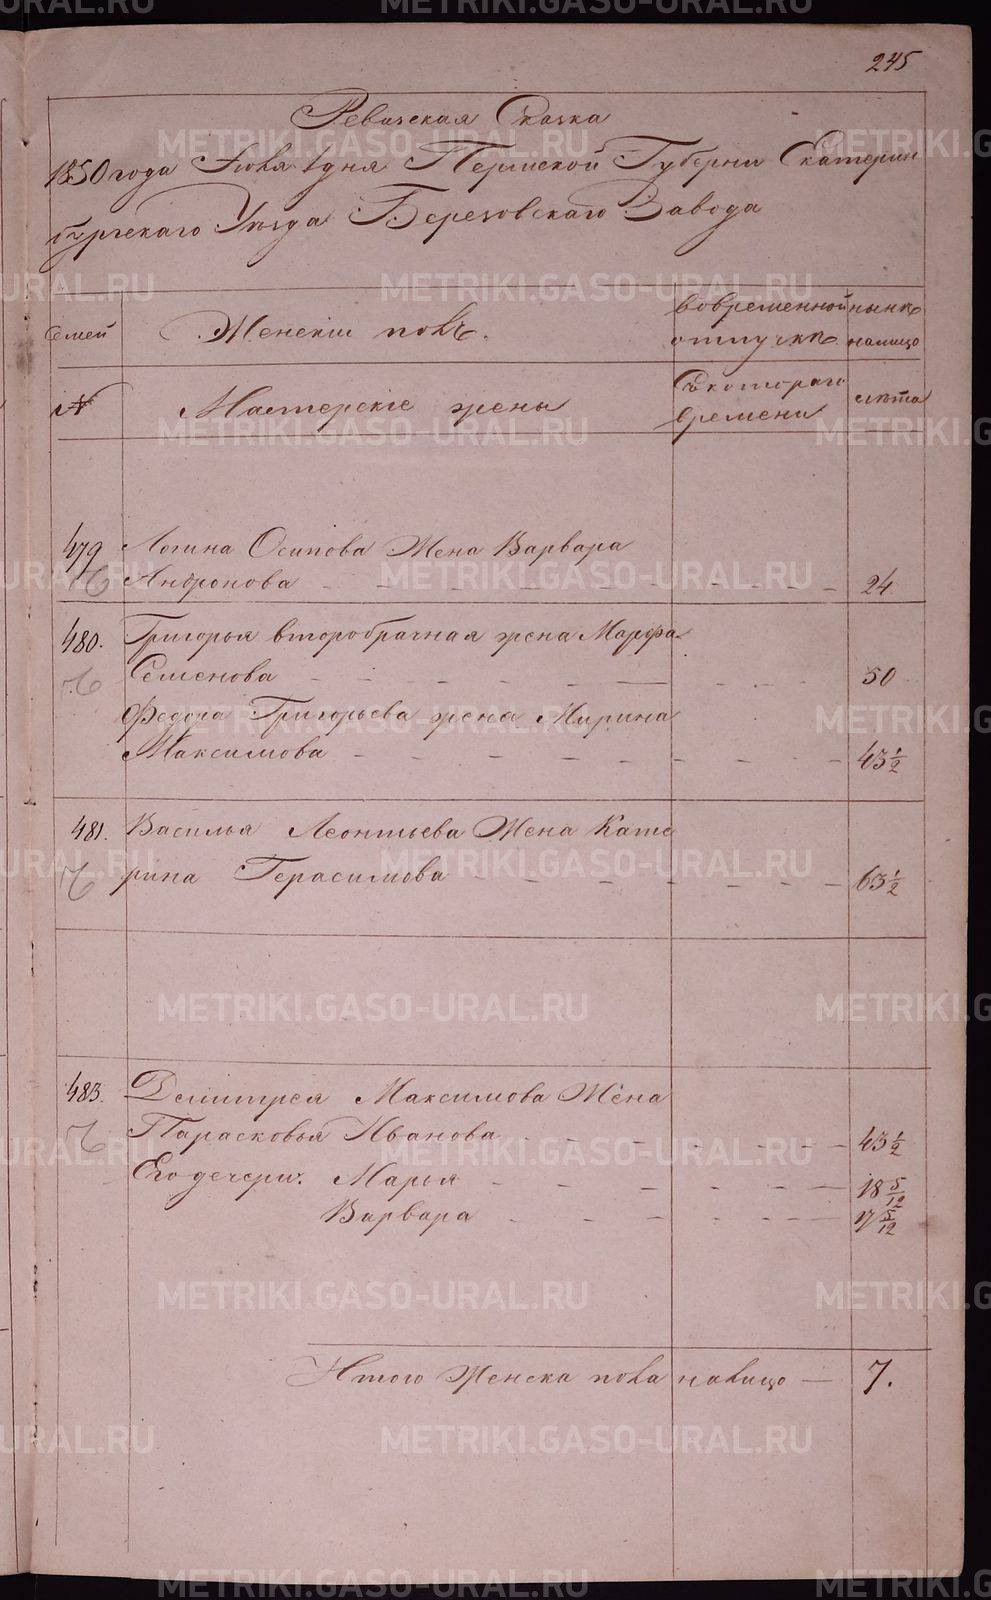 245
Ревизская Сказка
1850 года Июля 1 дня Пермской Губерни Екатерин
бургскаго Уезда Березовскаго Завода
Семей
Женский полъ.
во временной
отлучкѣ
нынѣ
налицо
№
Мастерскiе жены
Съ котораго
времени
лѣта
479
Логина Осипова Жена Варвара
Андронова
24
480.
Григорья второбрачная жена Марфа
Семенова
50
Федора Григорьева жена Марина
Максимова
43 1/2
481.
Василья Леонтьева Жена Кате
рина Герасимова
63 1/2
483.
Демитрея Максимова Жена
Парасковья Иванова
43 1/2
Его дечери: Марья
18 5/12
Варвара
17 5/12
Итого Женска пола налицо — 7.
METRIKI.GASO-URAL.RU